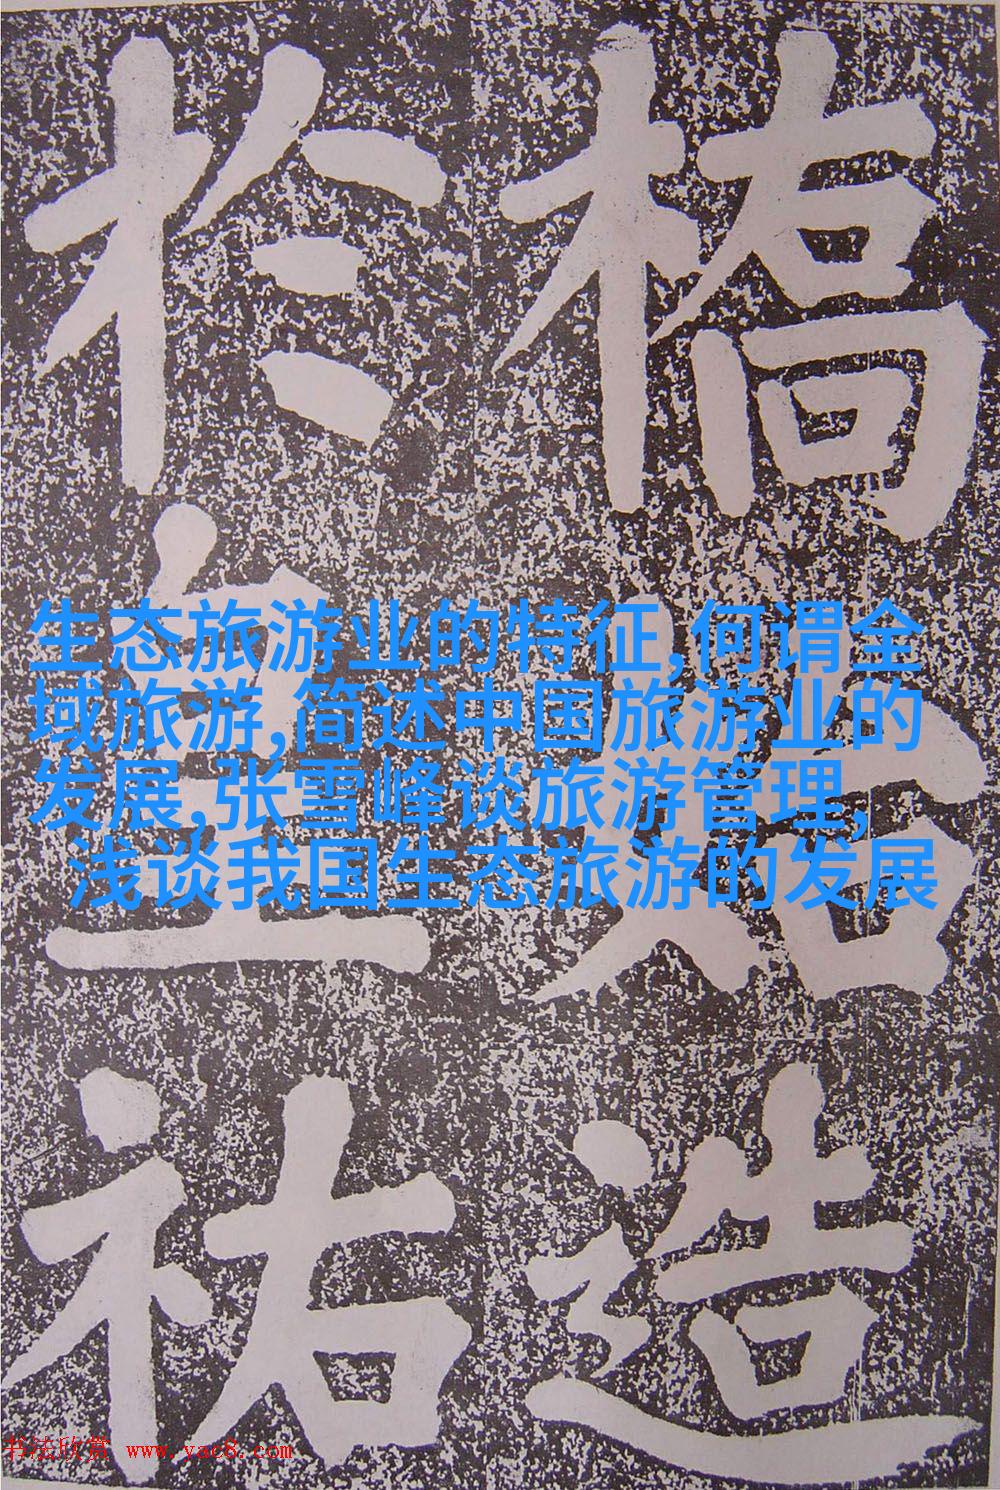 橋始造
於皇祐
生态旅游业的特征,何谓全
域旅游,简述中国旅游业的
发展,张雪峰谈旅游管理,
浅谈我国生态旅游的发展
书法欣赏 www.yac8.com